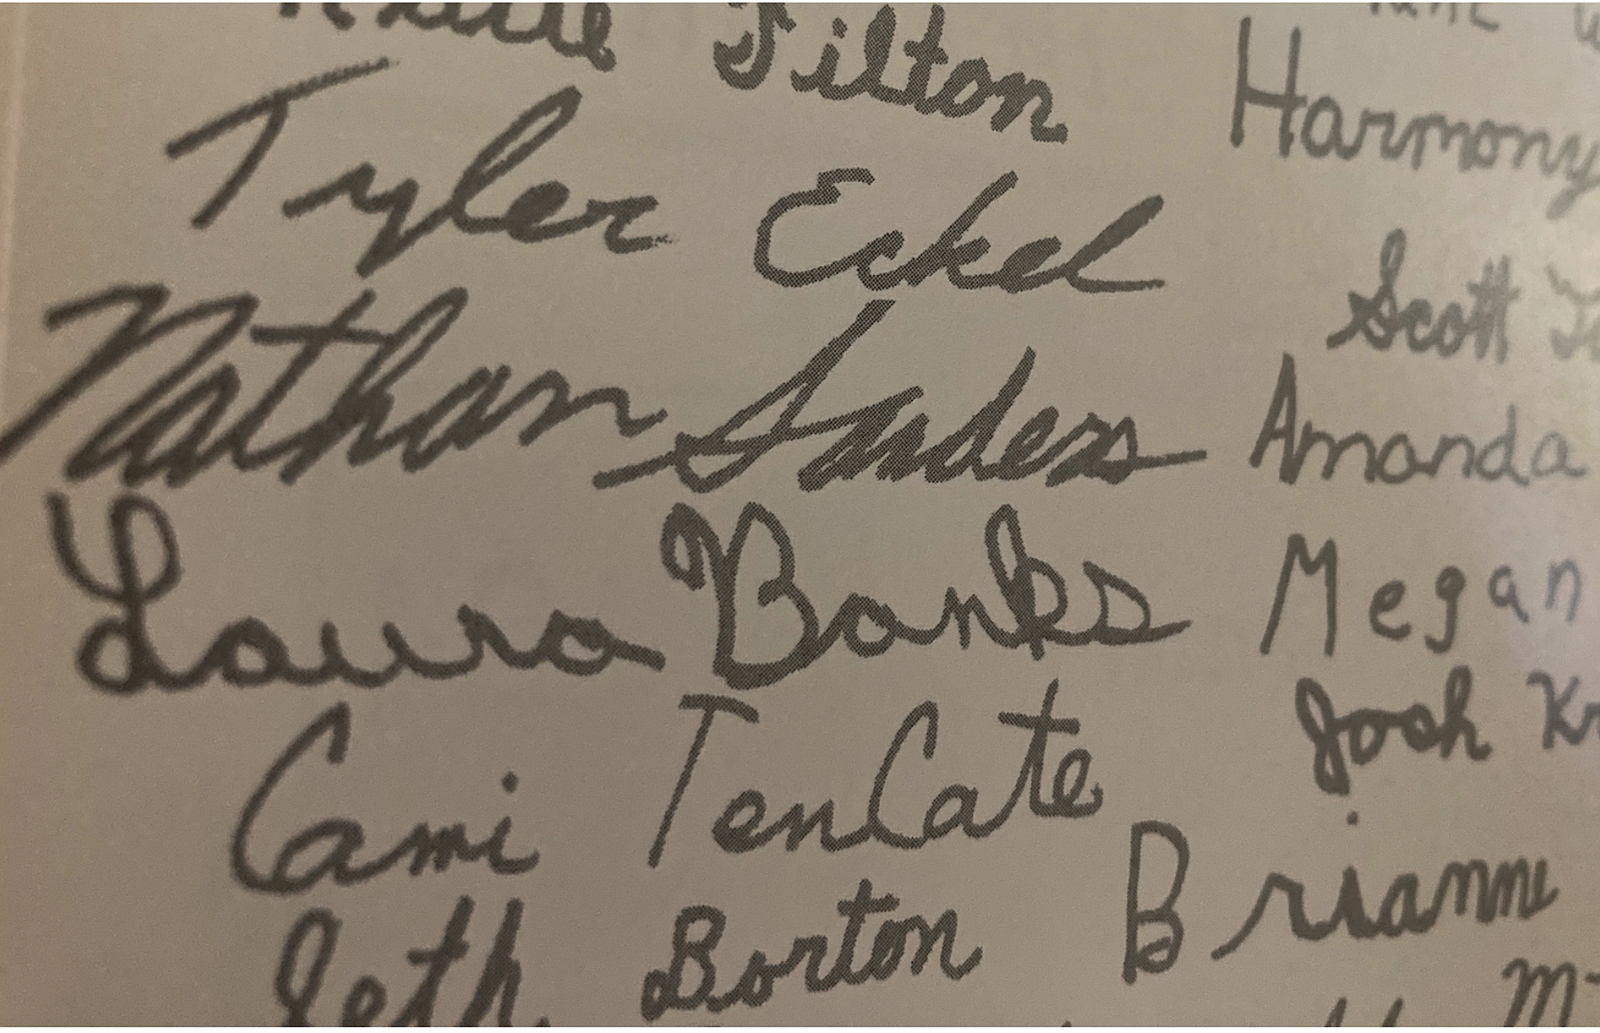 Tilton
Tyler Eckel
Nathan Sanders
Laura Banks
Cami TenCate
Seth Borton
Harmony
Scott
Amanda
Megan
Josh Kr
Brianne